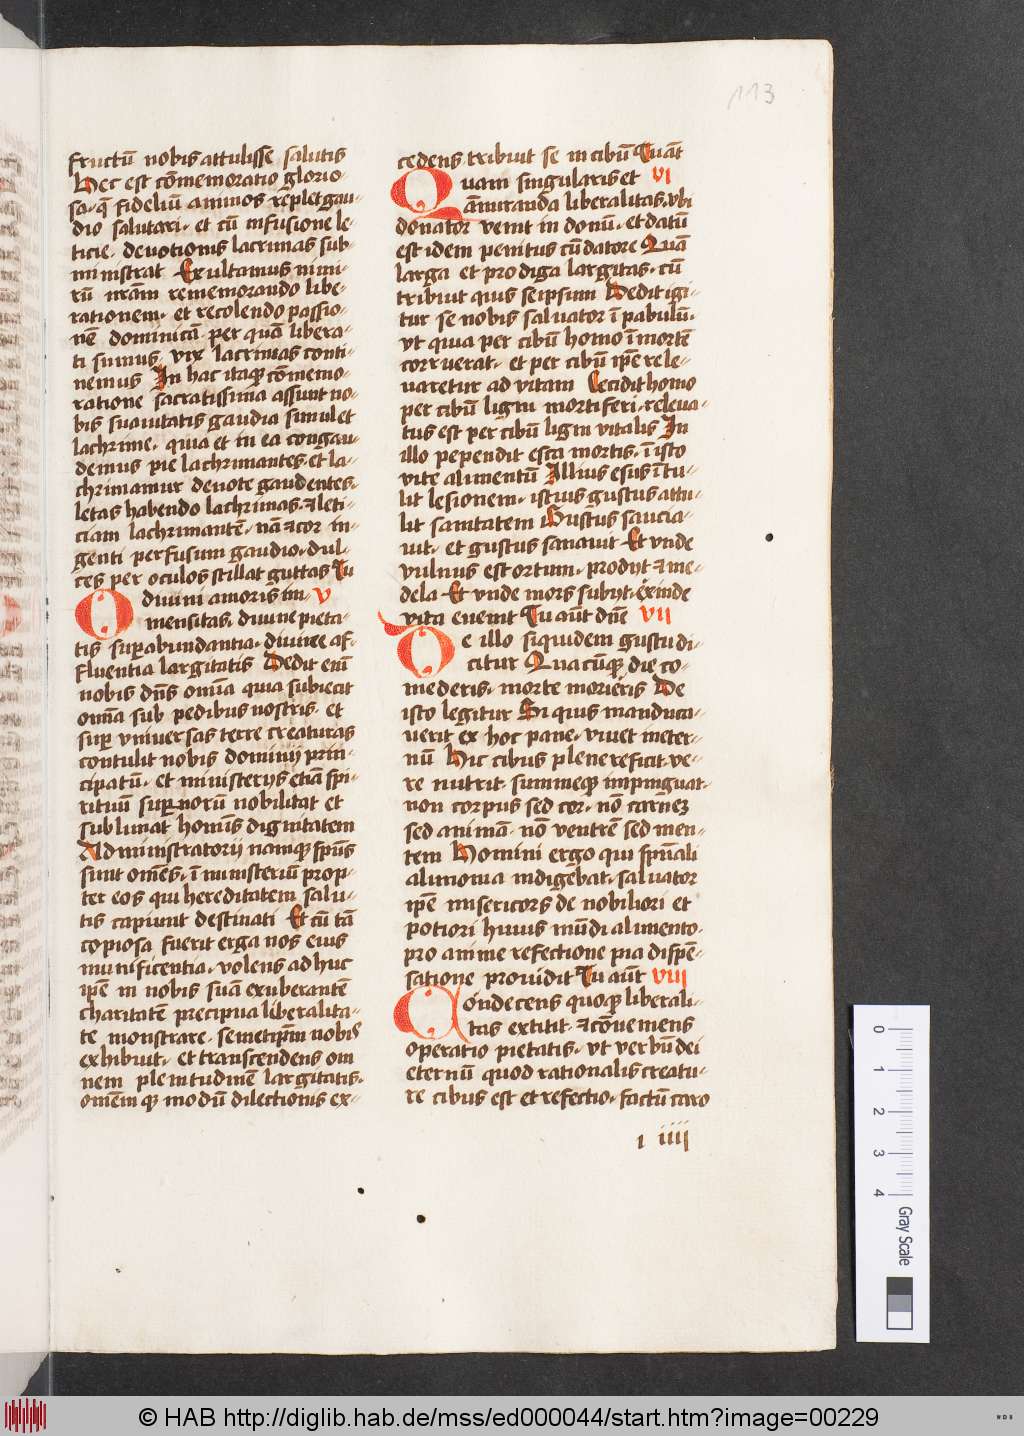 113
fructū nobis attulisse salutis
Hec est cōmemoratio glorio-
sa, q̄ fideliū animos replet gau-
dio salutari, et cū infusione le-
ticie, devotionis lacrimas sub-
ministrat Exultamus nimi-
rū nrām rememorando libe-
rationem, et recolendo passio-
nē dominicā, per quā libera-
ti sumus, vix lacrimas conti-
nemus In hac itaq̄ cōmemo-
ratione sacratissima assunt no-
bis suavitatis gaudia simul et
lachrime, quia et in ea congau-
demus pie lachrimantes, et la-
chrimamur devote gaudentes,
letas habendo lachrimas, ⁊ leti-
ciam lachrimantē, nā ⁊ cor in-
genti perfusum gaudio, dul-
ces per oculos stillat guttas Tu
O divini amoris im- v
mensitas, divine pieta-
tis sup̄abundantia, divine af-
fluentia largitatis Dedit enī
nobis dn̄s om̄ia quia subiecit
om̄a sub pedibus nostris, et
sup̄ universas terre creaturas
contulit nobis dominij prin-
cipatū, et ministerijs etiā spi-
rituū sup̄norū nobilitat et
sublimat homīs dignitatem
Administratorij namq̄ sp̄us
sunt om̄es, ī ministeriū prop-
ter eos qui hereditatem salu-
tis capiunt destinati Et cū tā
copiosa fuerit erga nos eius
munificentia, volens adhuc
ip̄e in nobis suā exuberantē
charitatē precipua liberalita-
te monstrare, semetip̄m nobis
exhibuit, et transcendens om
nem plenitudinē largitatis,
om̄em q̄ modū dilectionis ex-
cedens, tribuit se in cibū Tu aūt
Quam singularis et VI
am̄iranda liberalitas, ubi
donator venit in donū, et datū
est idem penitus cū datore Quā
larga et prodiga largitas, cū
tribuit quis seipsum Dedit igi-
tur se nobis salvator ī pabulū,
vt quia per cibū homo ī mortē
corruerat, et per cibū ip̄e rele-
varetur ad vitam Cecidit homo
per cibū ligni mortiferi, releva-
tus est per cibū ligni vitalis In
illo pependit esca mortis, ī isto
vite alimentū Illius esus ītu-
lit lesionem, istius gustus attu-
lit sanitatem Gustus saucia-
vit, et gustus sanavit Et vnde
vulnus est ortum, prodijt ⁊ me-
dela Et vnde mors subijt, exinde
vita evenit Tu aūt dn̄e VII
De illo siquidem gustu di-
citur Quacūq̄ die co-
mederis, morte morieris De
isto legitur Si quis manduca-
verit ex hoc pane, vivet in eter-
nū Hic cibus plene reficit, ve-
re nutrit, summeq̄ impinguat,
non corpus sed cor, nō carnēz
sed animā, nō ventrē sed men-
tem Homini ergo qui sp̄uali
alimonia indigebat, salvator
ip̄e misericors de nobiliori et
potiori huius mūdi alimento,
pro anime refectione pia dispē-
satione providit Tu aūt VIII
Condecens quoq̄ liberali-
tas extitit, ⁊ cōveniens
operatio pietatis, vt verbū dei
eternū quod rationalis creatu-
re cibus est et refectio, factū caro
l iiij
0 1 2 3 4
Gray Scale
© HAB http://diglib.hab.de/mss/ed000044/start.htm?image=00229